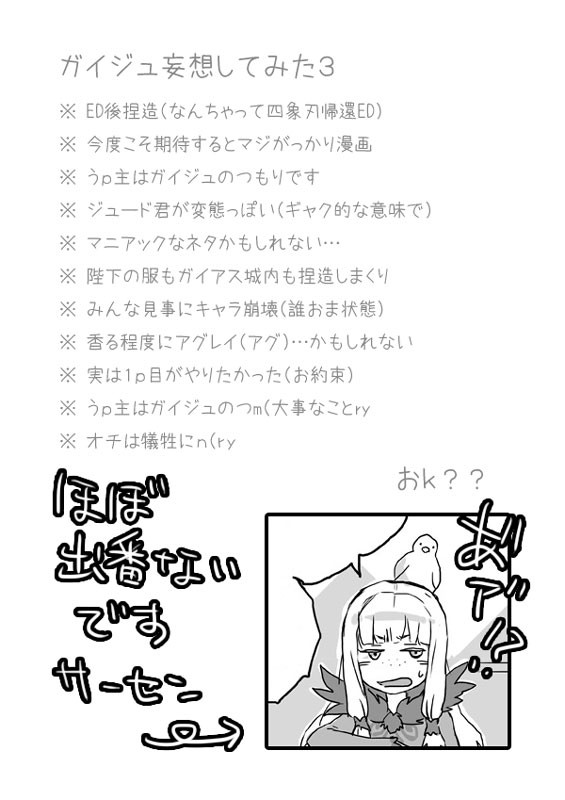 ガイジュ妄想してみた3
※ ED後捏造(なんちゃって四象刃帰還ED)
※ 今度こそ期待するとマジがっかり漫画
※ うp主はガイジュのつもりです
※ ジュード君が変態っぽい(ギャク的な意味で)
※ マニアックなネタかもしれない…
※ 陛下の服もガイアス城内も捏造しまくり
※ みんな見事にキャラ崩壊(誰おま状態)
※ 香る程度にアグレイ(アグ)…かもしれない
※ 実は1p目がやりたかった(お約束)
※ うp主はガイジュのつm(大事なことry
※ オチは犠牲にn(ry
おk??
ほぼ
出番ない
です
サーセン
あ゛ァん?